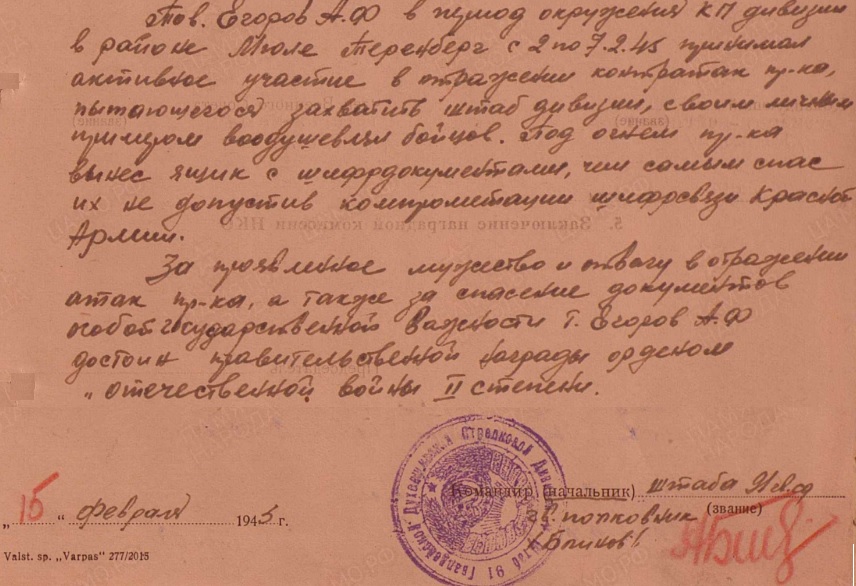 Тов. Егоров А.Ф в период окружения КП дивизии
в районе Мюле Теренберг с 2 по 7.2.45 принимал
активное участие в отражении контратак пр-ка,
пытающегося захватить штаб дивизии, своим личным
примером воодушевлял бойцов. Под огнем пр-ка
вынес ящик с шифрдокументами, чем самым спас
их не допустив компрометации шифрсвязи Красной
Армии.
За проявленное мужество и отвагу в отражении
атак пр-ка, а также за спасение документов
особой государственной важности т. Егоров А.Ф
достоин правительственной награды орденом
„Отечественной войны II степени.
Командир (начальник) штаба 91 гв.сд
(звание)
гв. полковник
„15“ февраля 1945 г.
Valst. sp. „Varpas“ 277/2015
5. Заключение наградной комиссии НКО